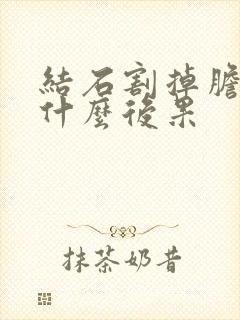 結石割掉膽
什麼後果
抹茶奶昔